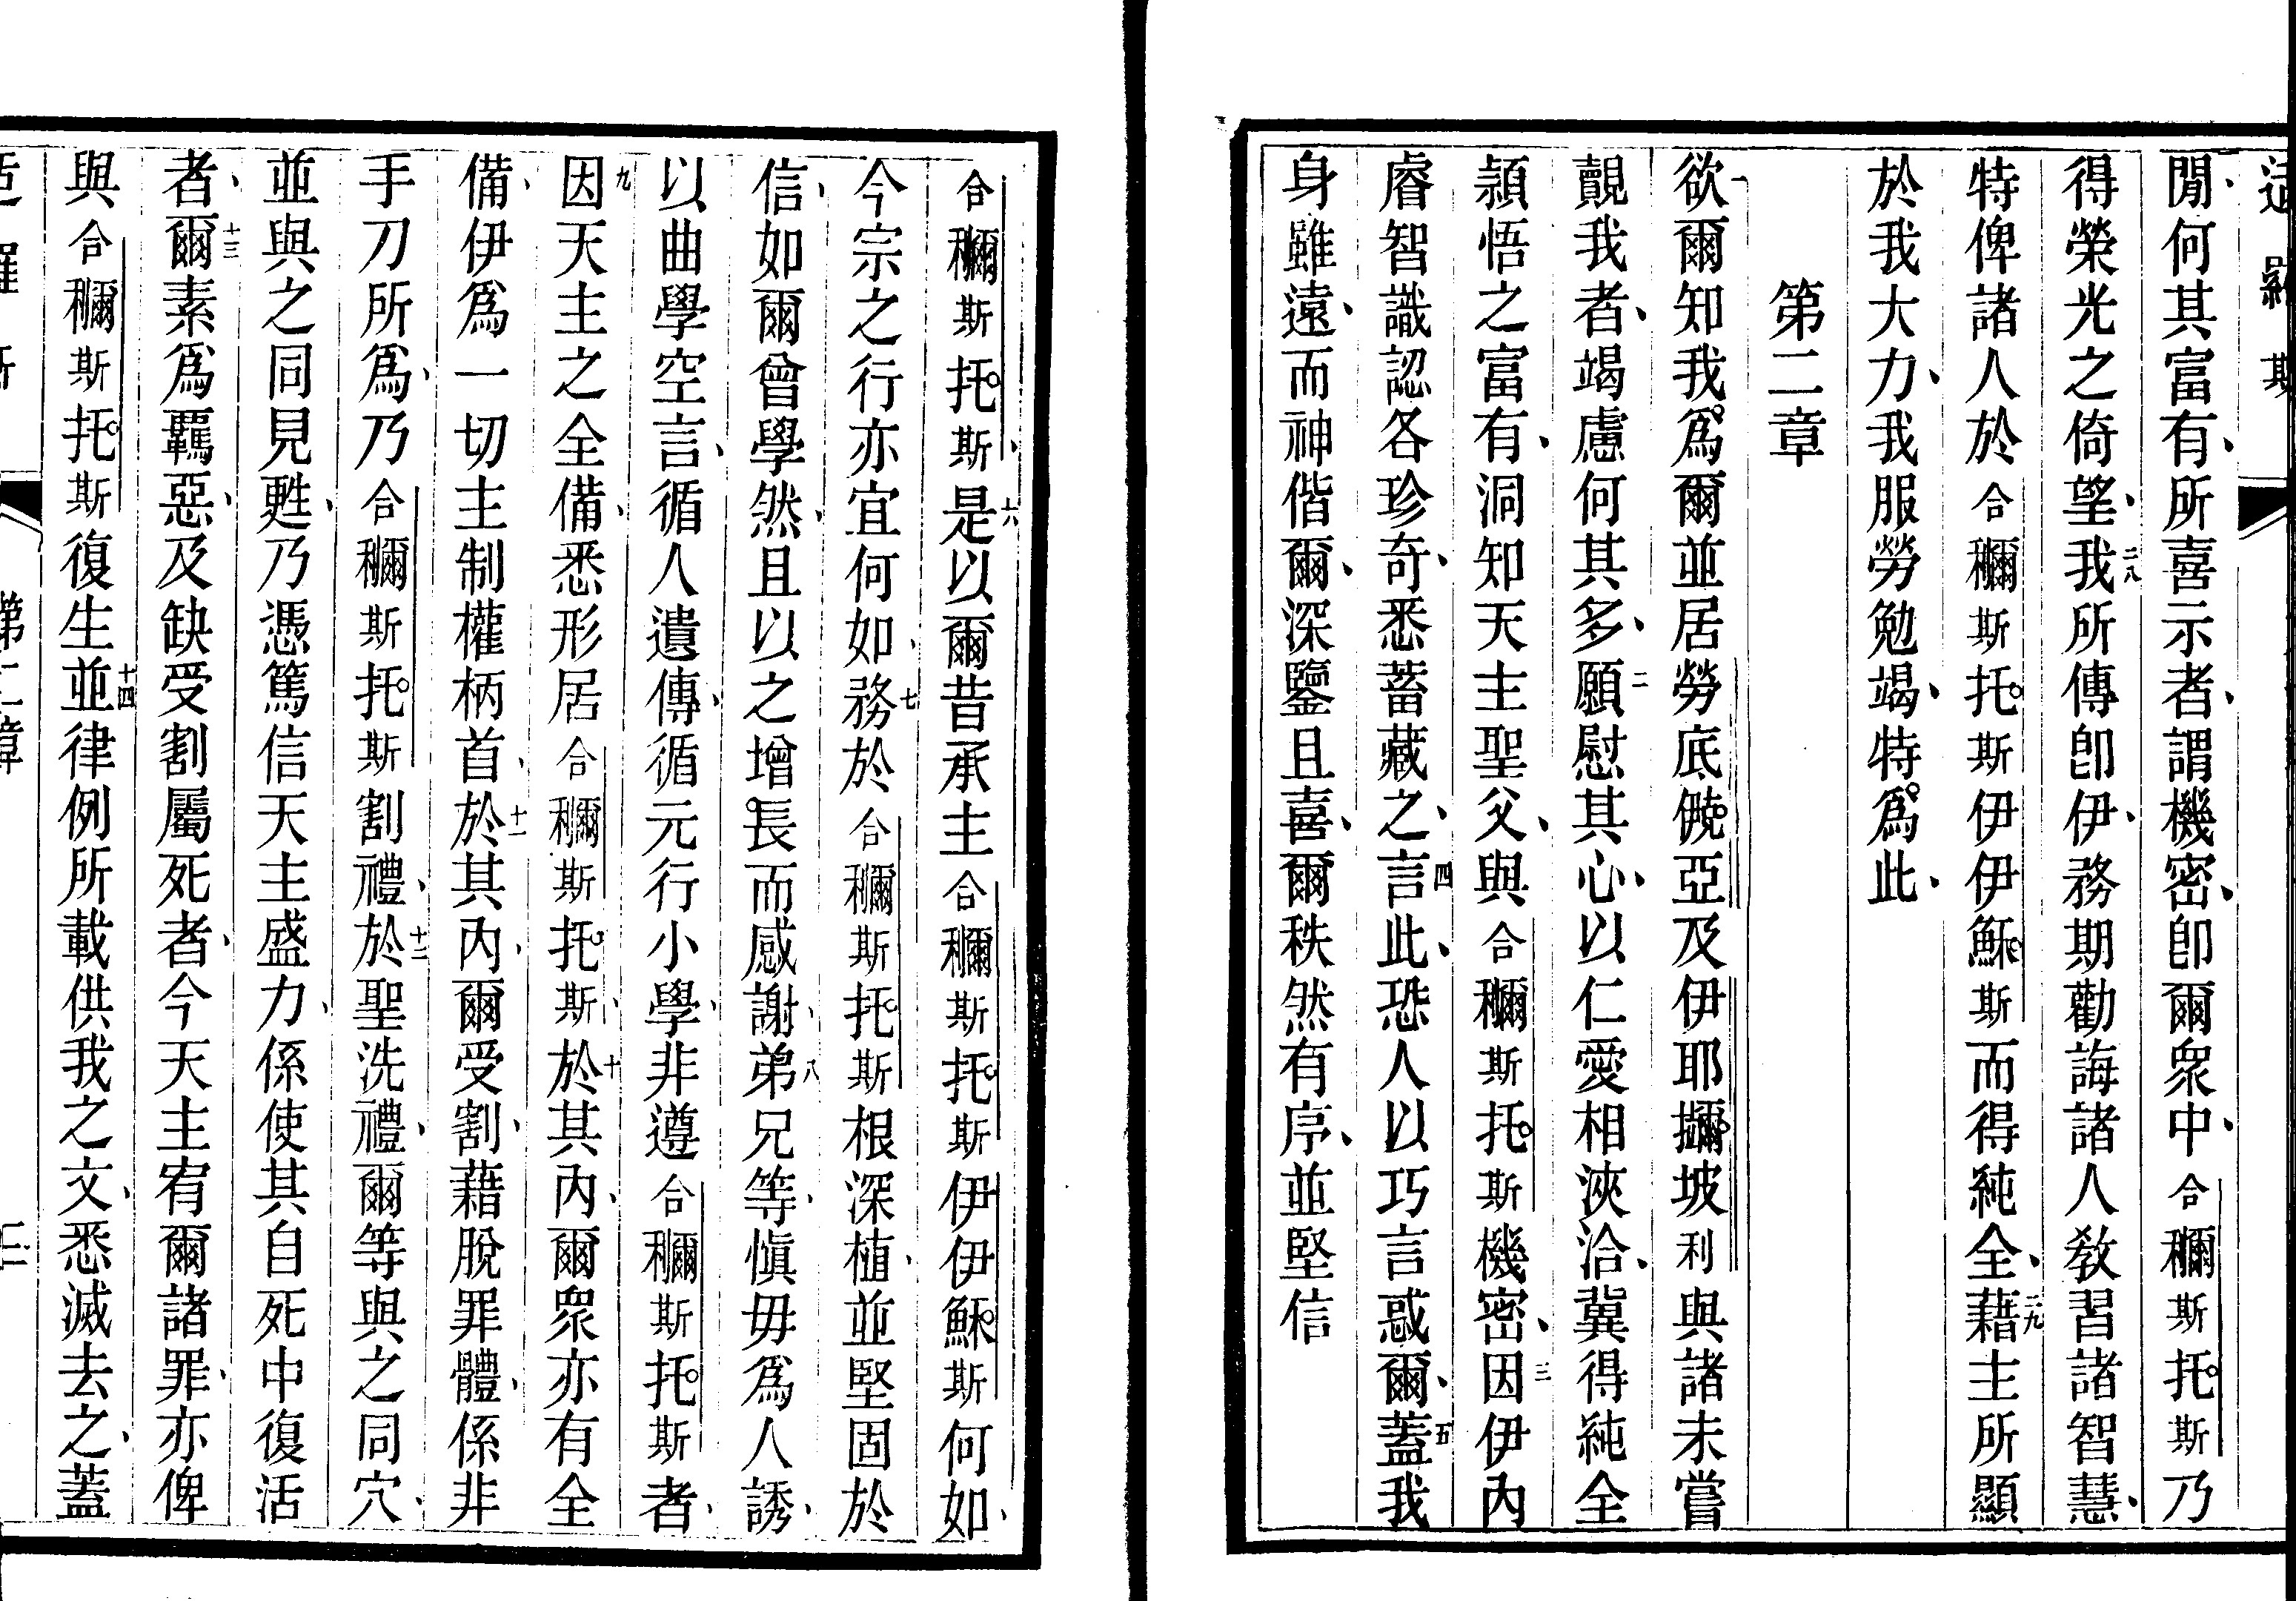 閒、何其富有、所喜示者、謂機密、卽爾衆中、合穪斯托斯乃
得榮光之倚望、二八我所傳卽伊、務期勸誨諸人敎習諸智慧、
特俾諸人於合穪斯托斯伊伊穌斯而得純全、二九藉主所顯
於我大力、我服勞勉竭、特爲此、
第二章
一欲爾知我爲爾並居勞底亞及伊耶坡利與諸未嘗
覿我者、竭慮何其多、二願慰其心、以仁愛相浹洽、冀得純全
頴悟之富有、洞知天主聖父、與合穪斯托斯機密、三因伊內
睿智識認各珍奇、悉蓄藏之、四言此、恐人以巧言惑爾、五蓋我
身雖遠、而神偕爾、深鑒且喜、爾秩然有序、並堅信
合穪斯托斯、六是以爾昔承主合穪斯托斯伊伊穌斯何如、
今宗之行亦宜何如、七務於合穪斯托斯根深植、並堅固於
信、如爾曾學然、且以之增長而感謝、八弟兄等、愼毋爲人誘、
以曲學空言、循人遺傳、循元行小學、非遵合穪斯托斯者、
九因天主之全備、悉形居合穪斯托斯、十於其內、爾衆亦有全
備、伊爲一切主制權柄首、十一於其內、爾受割、藉脫罪體、係非
手刀所爲、乃合穪斯托斯割禮、十二於聖洗禮、爾等與之同穴、
並與之同見甦、乃憑篤信天主盛力、係使其自死中復活
者、十三爾素爲羈惡、及缺受割屬死者、今天主宥爾諸罪、亦俾
與合穪斯托斯復生、十四並律例所載供我之文、悉滅去之、蓋
第二章
二